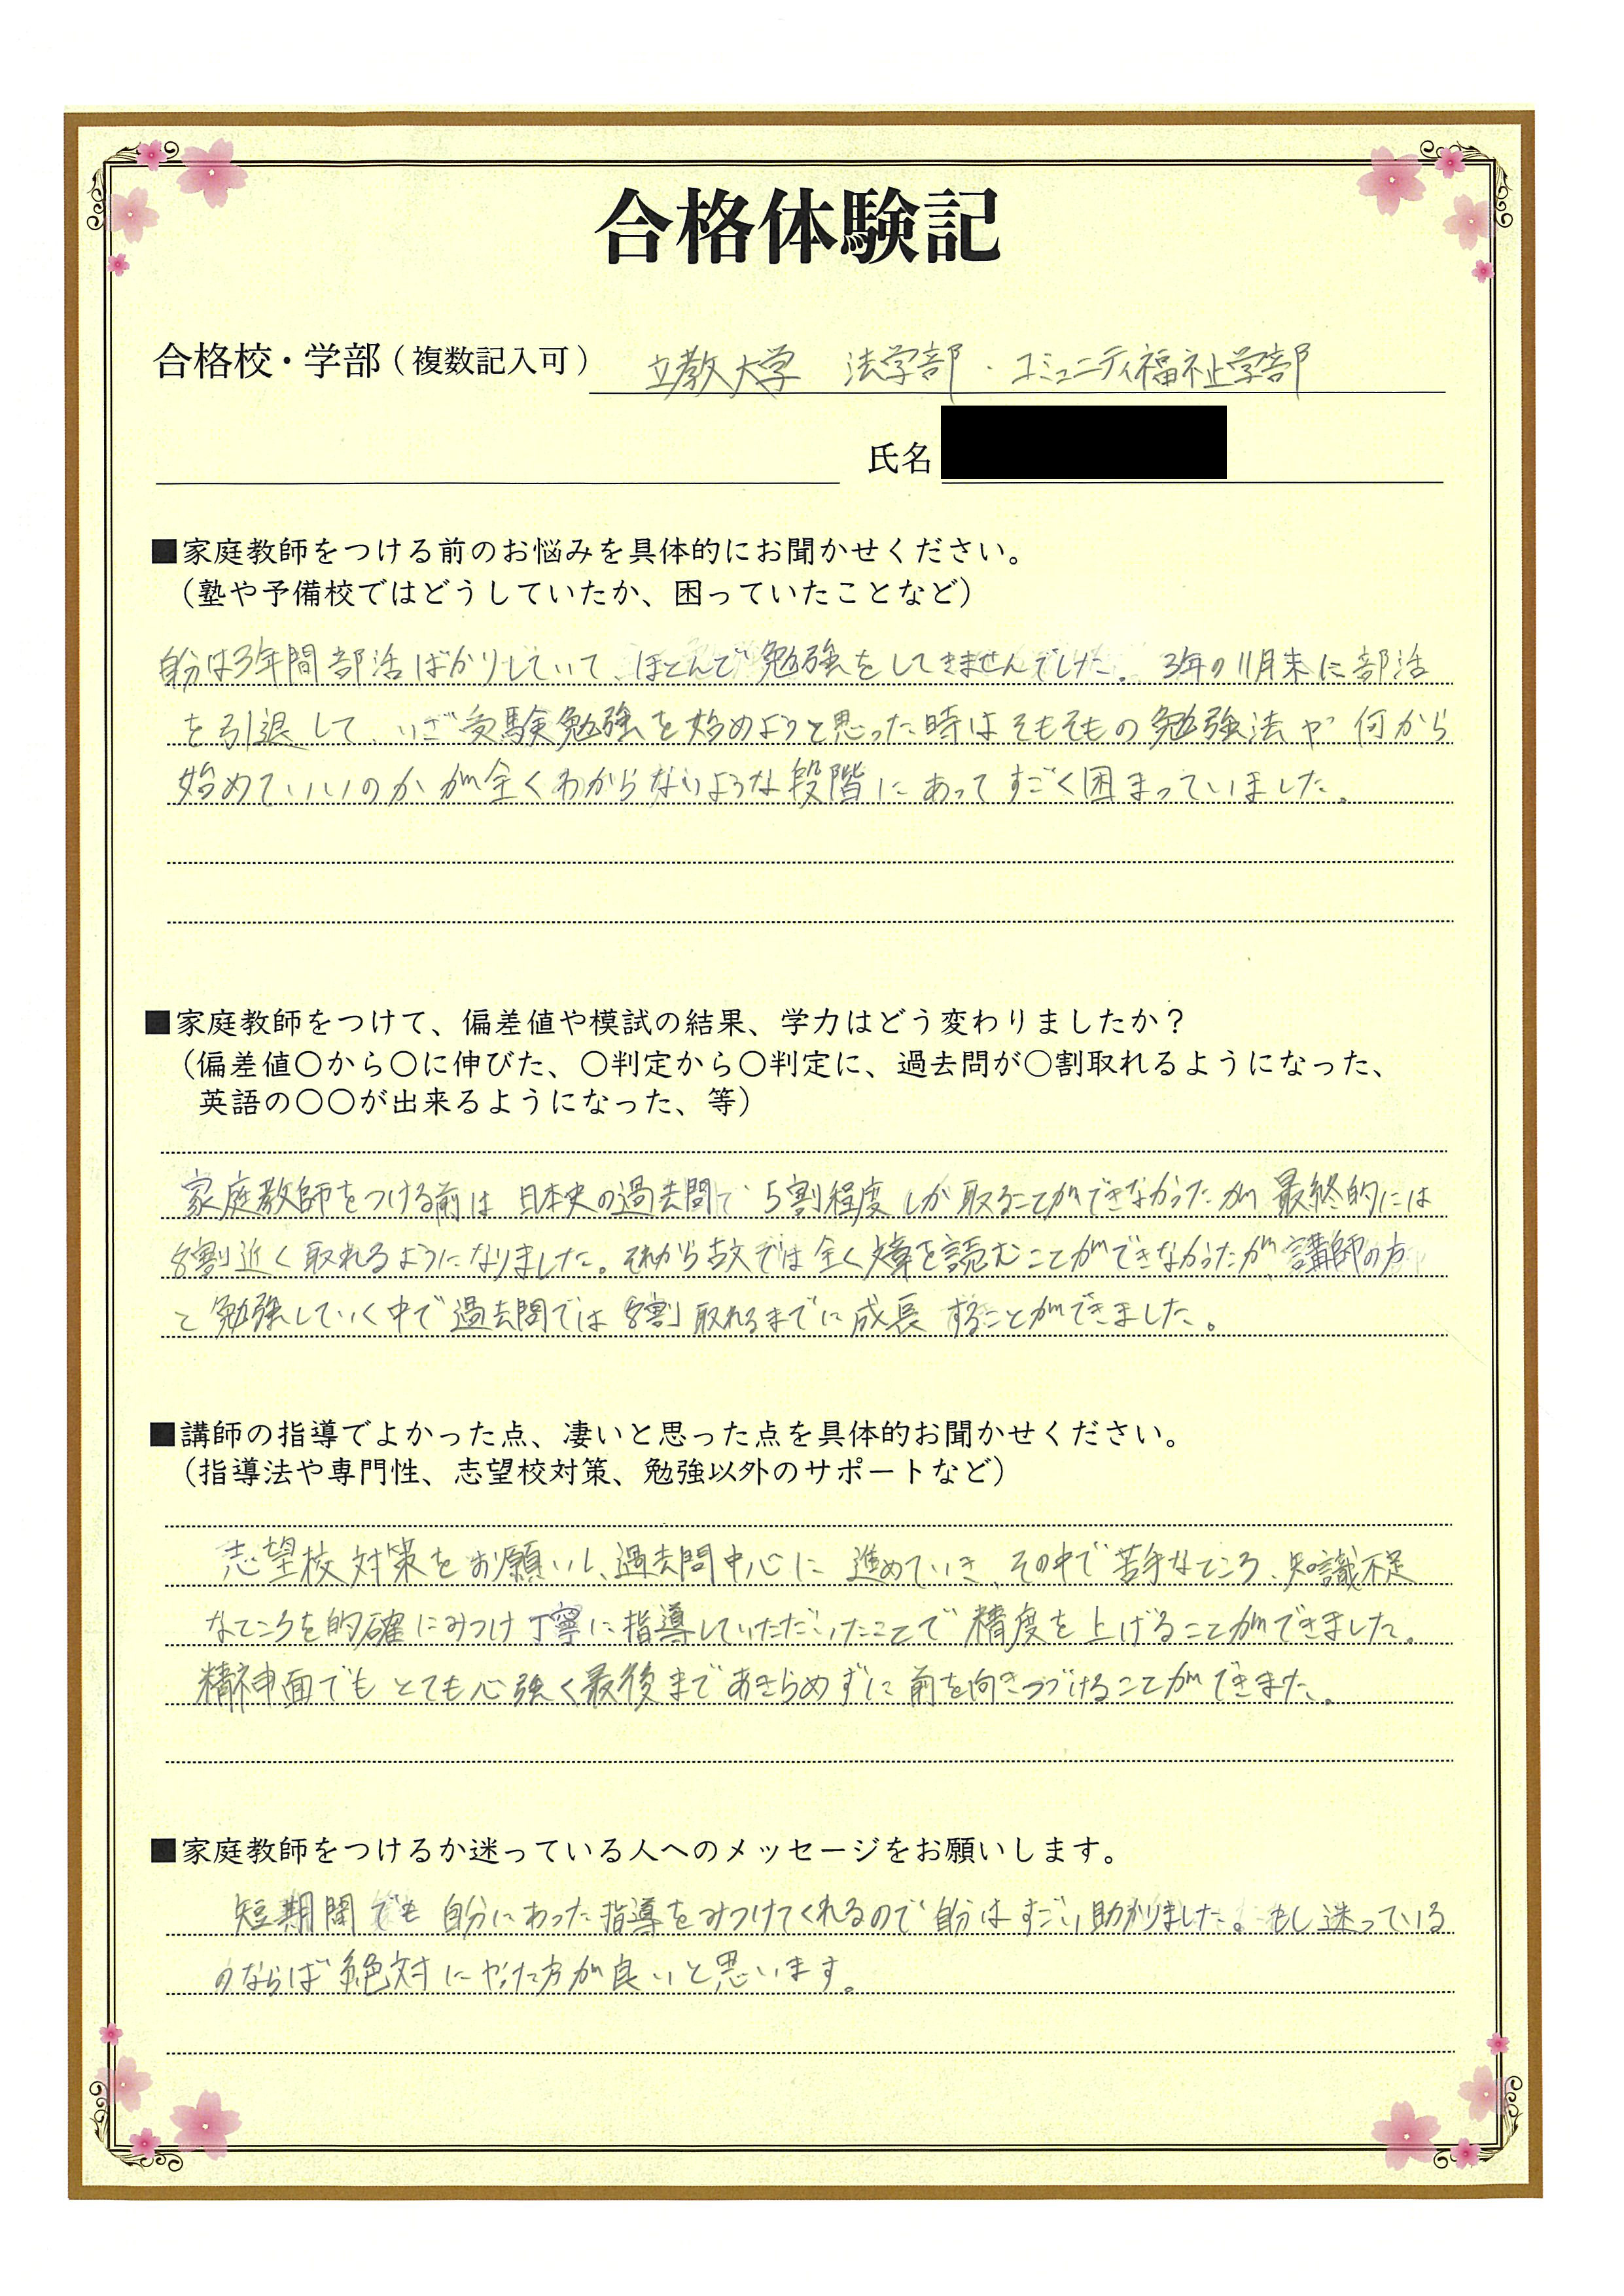 合格体験記
合格校・学部（複数記入可） 立教大学 法学部・コミュニティ福祉学部
氏名
■家庭教師をつける前のお悩みを具体的にお聞かせください。
（塾や予備校ではどうしていたか、困っていたことなど）
自分は3年間部活ばかりしていて、ほとんで勉強をしてきませんでした。3年の11月末に部活
を引退して、いざ受験勉強を始めようと思った時はそもそもの勉強法や何から
始めていいのかが全くわからないような段階にあってすごく困まっていました。
■家庭教師をつけて、偏差値や模試の結果、学力はどう変わりましたか？
（偏差値〇から〇に伸びた、〇判定から〇判定に、過去問が〇割取れるようになった、
英語の〇〇が出来るようになった、等）
家庭教師をつける前は日本史の過去問で5割程度しか取ることができなかったが最終的には
8割近く取れるようになりました。それから古文では全く文章を読むことができなかったが、講師の方
と勉強していく中で過去問では8割取れるまでに成長することができました。
■講師の指導でよかった点、凄いと思った点を具体的お聞かせください。
（指導法や専門性、志望校対策、勉強以外のサポートなど）
志望校対策をお願いし、過去問中心に進めていき、その中で苦手なところ、知識不足
なところを的確にみつけ丁寧に指導していただいたことで精度を上げることができました。
精神面でもとても心強く最後まであきらめずに前を向きつづけることができました。
■家庭教師をつけるか迷っている人へのメッセージをお願いします。
短期間でも自分にあった指導をみつけてくれるので自分はすごい助かりました。もし迷っている
のならば絶対にやった方が良いと思います。